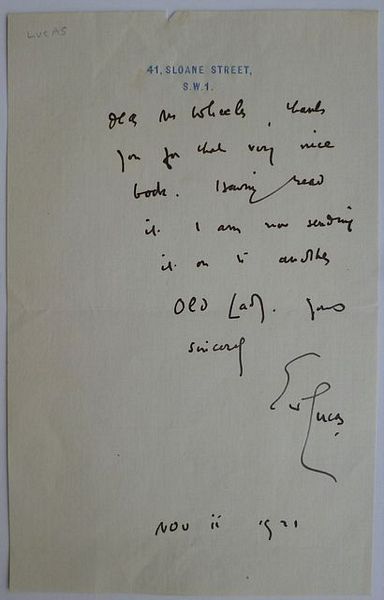 LUCAS
41, SLOANE STREET,
S.W.1.
Dear Mr Wheeler, thank
you for that very nice
book. Having read
it I am now sending
it on to another
Old Lady. Yours
sincerely
E V Lucas
Nov 11 1921